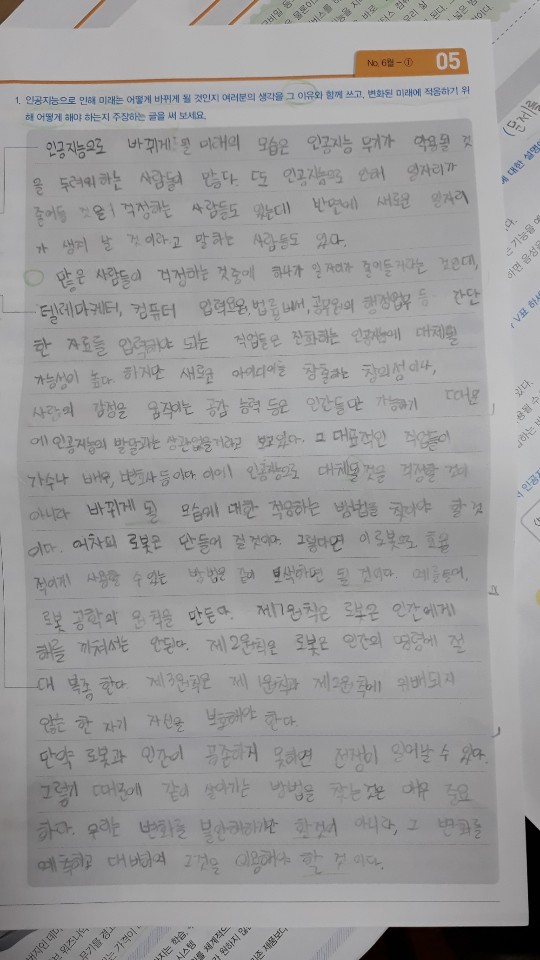 No. 6월 - ①
05
1. 인공지능으로 인해 미래는 어떻게 바뀌게 될 것인지 여러분의 생각을 그 이유와 함께 쓰고, 변화된 미래에 적응하기 위
해 어떻게 해야 하는지 주장하는 글을 써 보세요.
인공지능으로 바뀌게 될 미래의 모습은 인공지능 무기가 악용될 것
을 두려워하는 사람들이 많다. 또 인공지능으로 인해 일자리가
줄어들 것을 걱정하는 사람들도 있는데 반면에 새로운 일자리
가 생겨 날 것이라고 말하는 사람들도 있다.
많은 사람들이 걱정하는 것중에 하나가 일자리가 줄어들거라는 것인데,
텔레마케터, 컴퓨터 입력요원, 법률비서, 공무원의 행정업무 등 간단
한 자료를 입력해야 되는 직업들은 진화하는 인공지능에 대체될
가능성이 높다. 하지만 새로운 아이디어를 창출하는 창의성이나,
사람의 감정을 움직이는 공감 능력 등은 인간들만 가능하기 때문
에 인공지능의 발달과는 상관없을거라고 보고있다. 그 대표적인 직업들이
가수나 배우, 변호사 등이다. 인공지능으로 대체될 것을 걱정할 것이
아니라 바뀌게 될 모습에 대한 적응하는 방법을 찾아야 할 것
이다. 어차피 로봇은 만들어 질 것이다. 그렇다면 이 로봇으로 효율
적이게 사용할 수 있는 방법은 모색하면 될 것이다. 예를들어,
로봇 공학과 원칙을 만든다. 제1원칙은 로봇은 인간에게
해를 끼쳐서는 안된다. 제2원칙은 로봇은 인간의 명령에 절
대 복종한다. 제3원칙은 제1원칙과 제2원칙에 위배되지
않는 한 자기 자신을 보호해야 한다.
만약 로봇과 인간이 공존하지 못하면 전쟁이 일어날 수 있다.
그렇기 때문에 같이 살아가는 방법을 찾는것은 매우 중요
하다. 우리는 변화를 불안해하기만 할것이 아니라, 그 변화를
예측하고 대비하여 그것을 이용해야 할 것 이다.